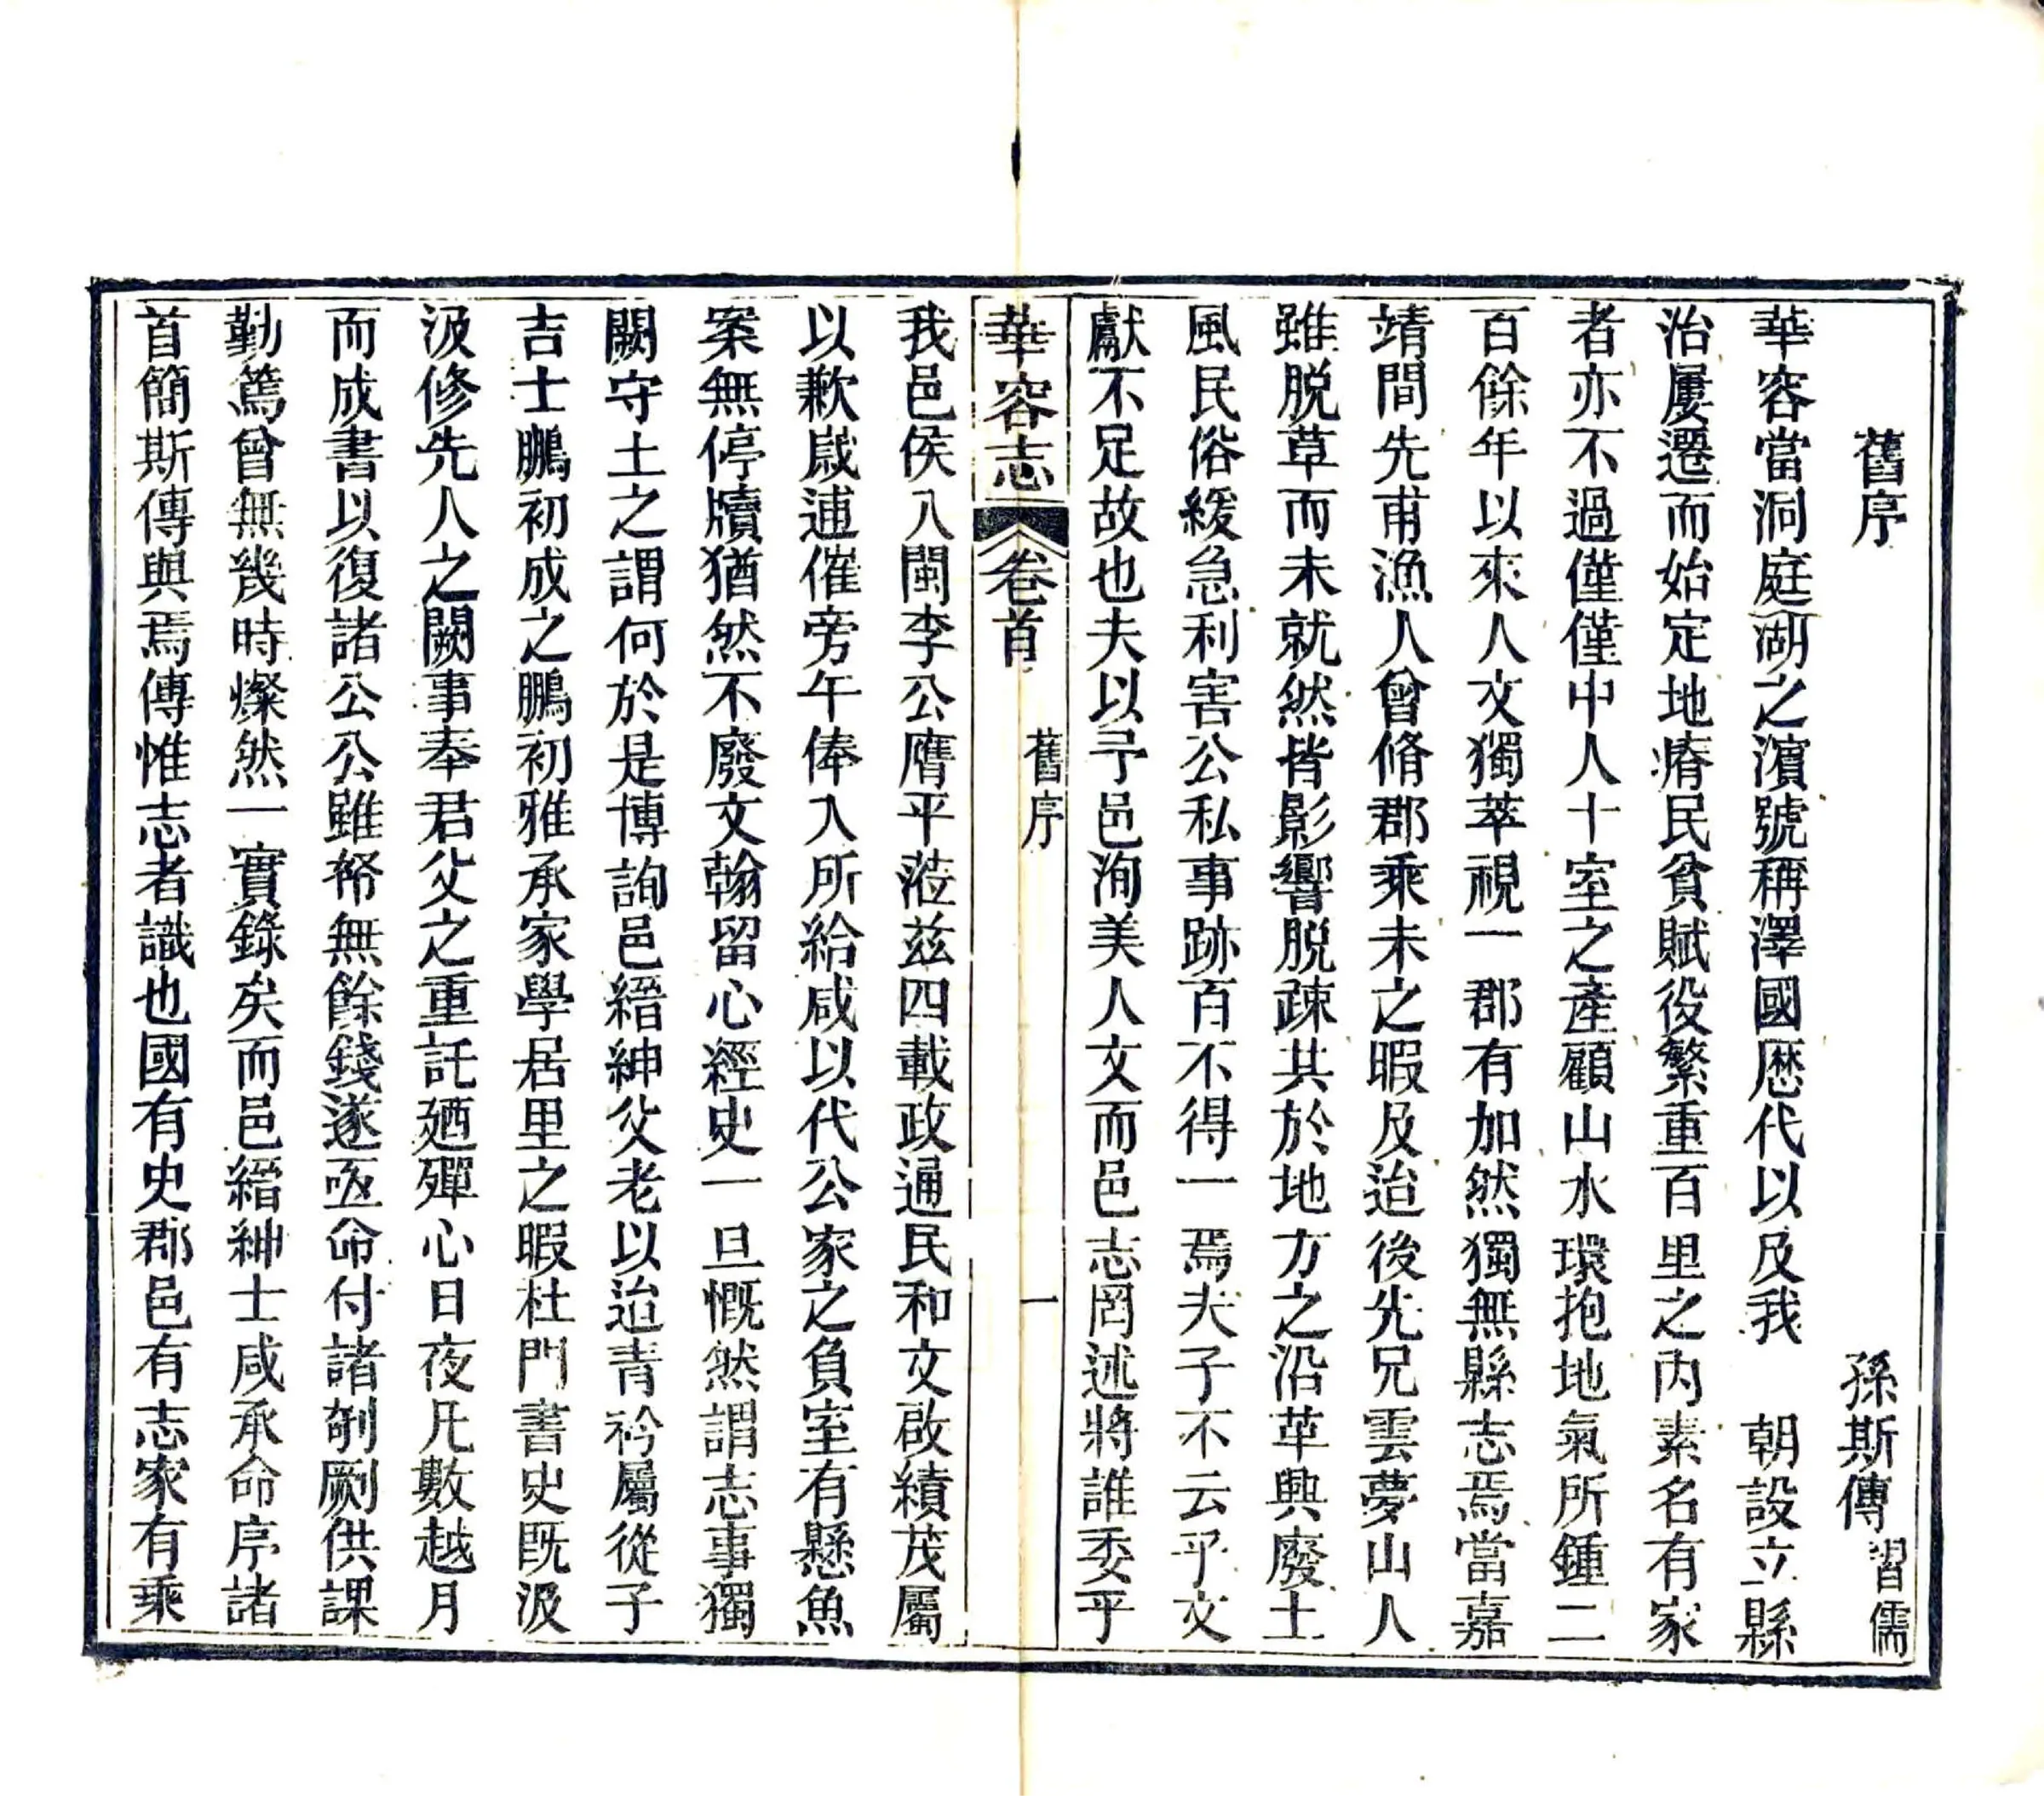 舊序
孫斯傳習儒
華容當洞庭湖之濱號稱澤國歷代以及我 朝設立縣
治屢遷而始定地瘠民貧賦役繁重百里之內素名有家
者亦不過僅僅中人十室之產顧山水環抱地氣所鍾二
百餘年以來人文獨萃視一郡有加然獨無縣志焉當嘉
靖間先甫漁人曾脩郡乘未之暇及迨後先兄雲夢山人
雖脫草而未就然皆影響脫疎其於地方之沿革興廢土
風民俗緩急利害公私事跡百不得一焉夫子不云乎文
獻不足故也夫以予邑洵美人文而邑志罔述將誰委乎
華容志 卷首 舊序 一
我邑侯八閩李公膺平蒞茲四載政通民和文啟績茂屬
以歉歲逋催旁午俸入所給咸以代公家之負室有懸魚
案無停牘猶然不廢文翰留心經史一旦慨然謂志事獨
闕守土之謂何於是博詢邑縉紳父老以迨青衿屬從子
吉士鵬初成之鵬初雅承家學居里之暇杜門書史既汲
汲修先人之闕事奉君父之重託廼殫心日夜凡數越月
而成書以復諸公公雖帑無餘錢遂亟命付諸剞劂供課
勤篤曾無幾時燦然一實錄矣而邑縉紳士咸承命序諸
首簡斯傳與焉傳惟志者識也國有史郡邑有志家有乘